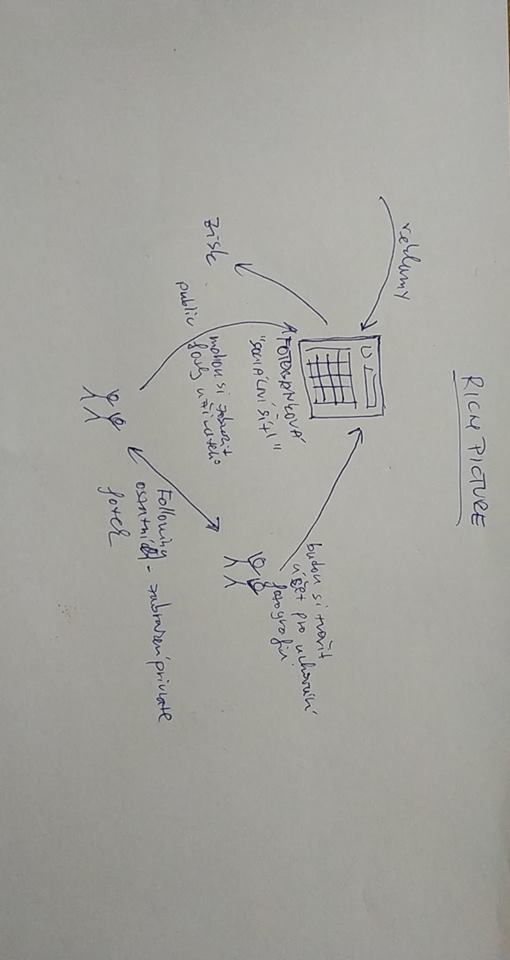 RICH PICTURE
reklamy
FOTOBANKOVÁ
"SOCIÁLNÍ SÍTĚ"
budou si tvořit
účet pro uchování
fotografií
zisk
mohou si zobrazit
public fotky uživatelů
Following
ostatních - zobrazení private
fotek